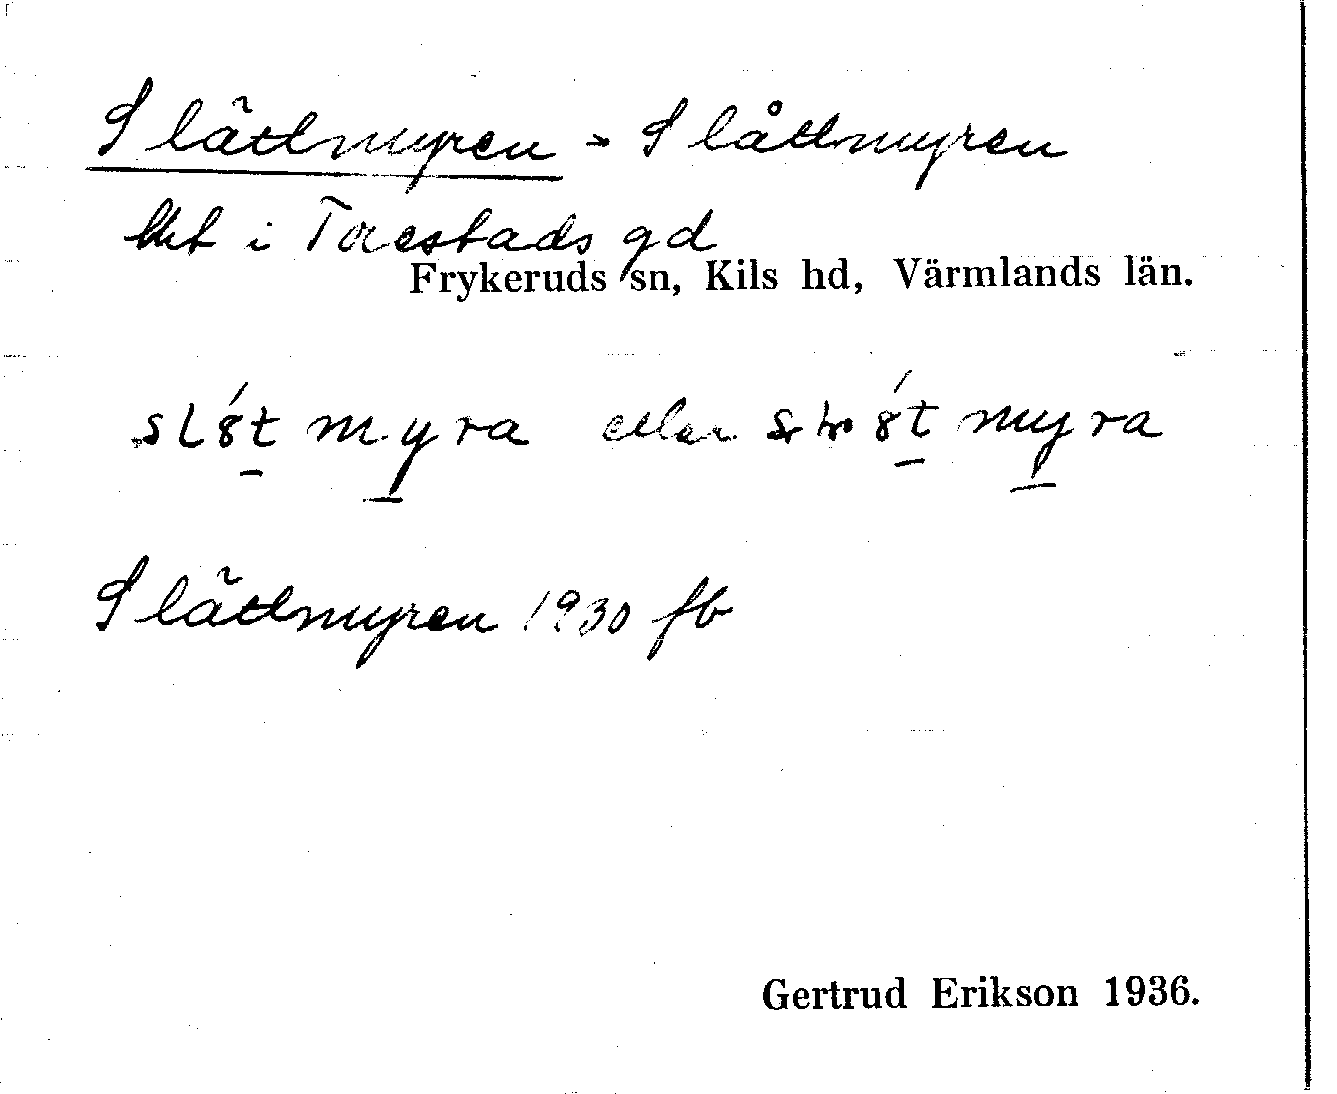 Slättmyren = Slåttmyren
lht i Torestads gd
Frykeruds sn, Kils hd, Värmlands län.
eller
Slättmyren 1930 fb
Gertrud Erikson 1936.